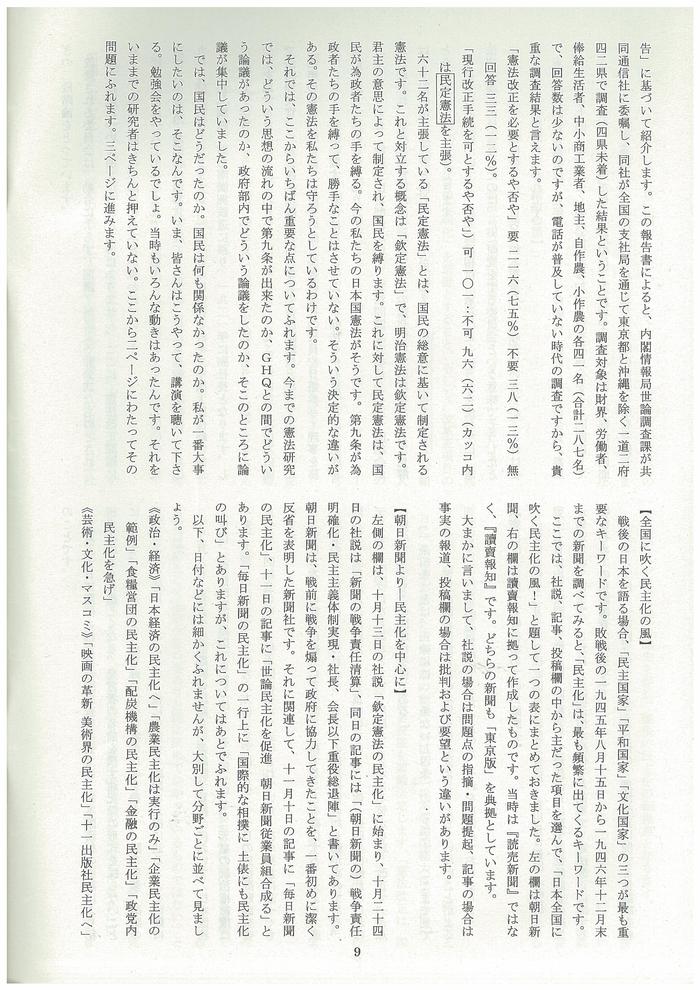 告」に基づいて紹介します。この報告書によると、内閣情報局世論調査課が共
同通信社に委嘱し、同社が全国の支社局を通じて東京都と沖縄を除く一道二府
四二県で調査（四県未着）した結果ということです。調査対象は財界、労働者、
俸給生活者、中小商工業者、地主、自作農、小作農の各四一名（合計二八七名）
で、回答数は少ないのですが、電話が普及していない時代の調査ですから、貴
重な調査結果と言えます。
「憲法改正を必要とするや否や」 要 二一六（七五％）不要 三八（一三％）無
回答 三三（一二％）。
「現行改正手続を可とするや否や」）可 一〇一：不可 九六（六二）（カッコ内
は民定憲法を主張）。
六十二名が主張している「民定憲法」とは、国民の総意に基いて制定される
憲法です。これと対立する概念は「欽定憲法」で、明治憲法は欽定憲法です。
君主の意思によって制定され、国民を縛ります。これに対して民定憲法は、国
民が為政者たちの手を縛る。今の私たちの日本国憲法がそうです。第九条が為
政者たちの手を縛って、勝手なことはさせていない。そういう決定的な違いが
ある。その憲法を私たちは守ろうとしているわけです。
それでは、ここからいちばん重要な点についてふれます。今までの憲法研究
では、どういう思想の流れの中で第九条が出来たのか、ＧＨＱとの間でどうい
う論議があったのか、政府部内でどういう論議をしたのか、そこのところに論
議が集中していました。
では、国民はどうだったのか。国民は何も関係なかったのか。私が一番大事
にしたいのは、そこなんです。いま、皆さんはこうやって、講演を聴いて下さ
る。勉強会をやっているでしょ。当時もいろんな動きはあったんです。それを
いままでの研究者はきちんと押えていない。ここから二ページにわたってその
問題にふれます。三ページに進みます。
【全国に吹く民主化の風】
戦後の日本を語る場合、「民主国家」「平和国家」「文化国家」の三つが最も重
要なキーワードです。敗戦後の一九四五年八月十五日から一九四六年十二月末
までの新聞を調べてみると、「民主化」は、最も頻繁に出てくるキーワードです。
ここでは、社説、記事、投稿欄の中から主だった項目を選んで、「日本全国に
吹く民主化の風！」と題して一つの表にまとめておきました。左の欄は朝日新
聞、右の欄は讀賣報知に拠って作成したものです。当時は『読売新聞』ではな
く、『讀賣報知』です。どちらの新聞も「東京版」を典拠としています。
大まかに言いまして、社説の場合は問題点の指摘・問題提起、記事の場合は
事実の報道、投稿欄の場合は批判および要望という違いがあります。
【朝日新聞より―民主化を中心に】
左側の欄は、十月十三日の社説「欽定憲法の民主化」に始まり、十月二十四
日の社説は「新聞の戦争責任清算」、同日の記事には「（朝日新聞の）戦争責任
明確化・民主主義体制実現・社長、会長以下重役総退陣」と書いてあります。
朝日新聞は、戦前に戦争を煽って政府に協力してきたことを、一番初めに潔く
反省を表明した新聞社です。それに関連して、十一月十日の記事に「毎日新聞
の民主化」、十一日の記事に「世論民主化を促進 朝日新聞従業員組合成る」と
あります。「毎日新聞の民主化」の一行上に「国際的な相撲に 土俵にも民主化
の叫び」とありますが、これについてはあとでふれます。
以下、日付などには細かくふれませんが、大別して分野ごとに並べて見まし
ょう。
《政治・経済》「日本経済の民主化へ」「農業民主化は実行のみ」「企業民主化の
範例」「食糧営団の民主化」「配炭機構の民主化」「金融の民主化」「政党内
民主化を急げ」
《芸術・文化・マスコミ》「映画の革新 美術界の民主化」「十一出版社民主化へ」
9